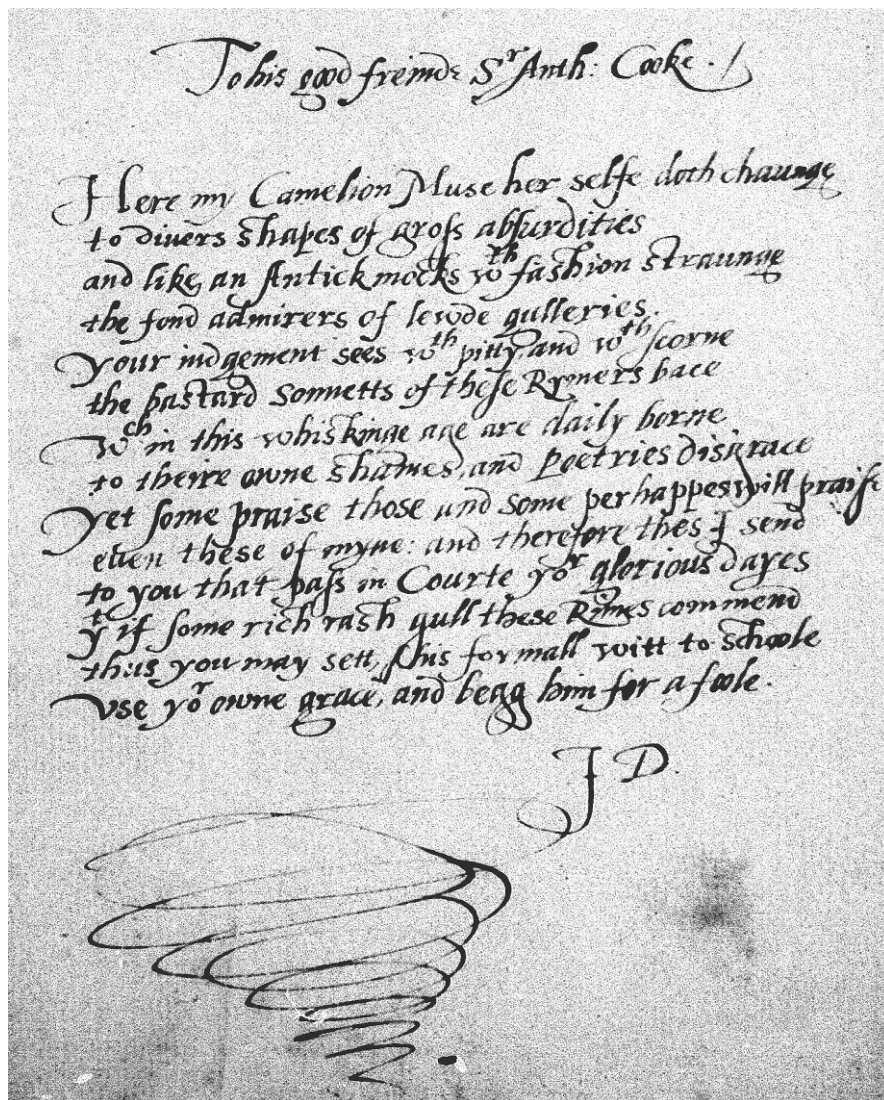 To his good freinde Sr Anth: Cooke.
Here my Camelion Muse her selfe doth chaunge
to divers shapes of gross absurdities
and like an Antick mocks wth fashion straunge
the fond admirers of lewde gulleries.
Your iudgement sees wth pitty, and wth scorne
the bastard Sonnetts of these Rymers bace
Wch in this whiskinge age are daily borne
to theire owne shames, and Poetries disgrace
Yet some praise those and some perhappes will praise
euen these of myne: and therefore thes I send
to you that pass in Courte yor glorious dayes
yt if some rich rash gull these Rimes commend
thus you may sett this formall witt to schoole
vse yor owne grace, and begg him for a foole.
J D.